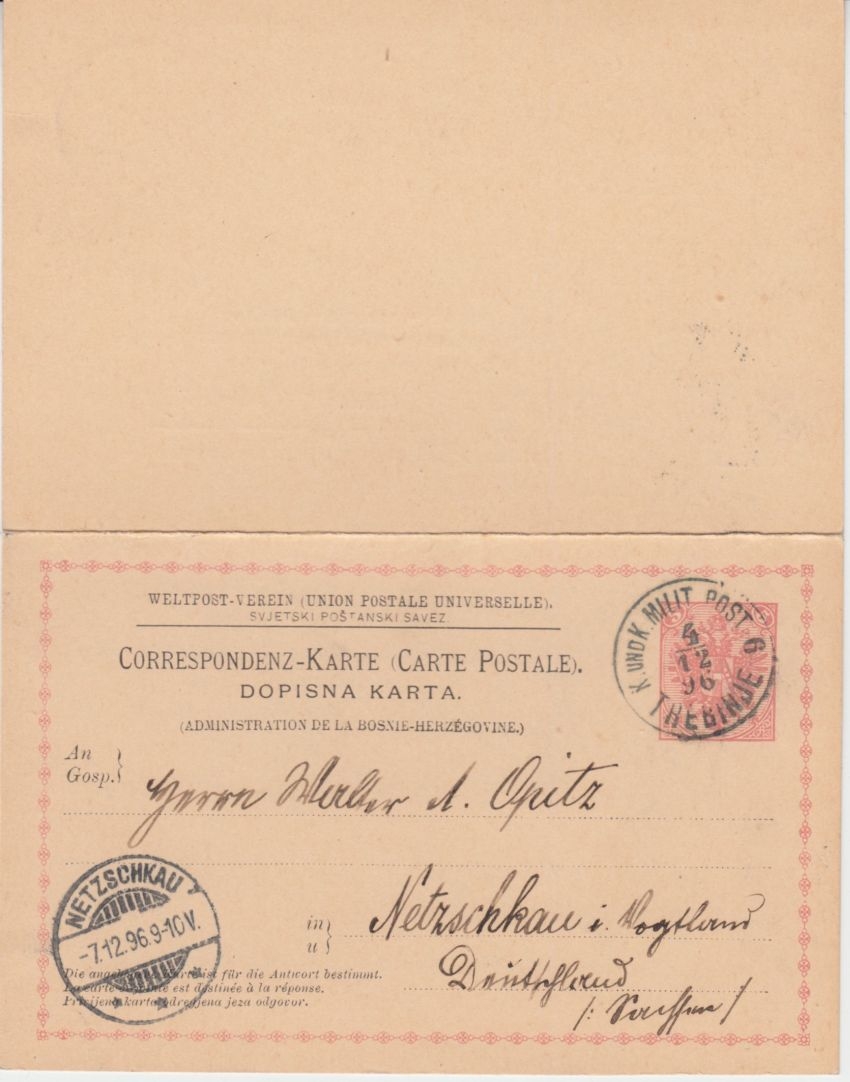 WELTPOST-VEREIN (UNION POSTALE UNIVERSELLE).
SVJETSKI POŠTANSKI SAVEZ.
CORRESPONDENZ-KARTE (CARTE POSTALE).
DOPISNA KARTA.
(ADMINISTRATION DE LA BOSNIE-HERZÉGOVINE.)
K. UND K. MILIT. POST 6
4
12
96
TREBINJE
An
Gosp.
Herrn Walter A. Opitz
NETZSCHKAU
-7.12.96.9-10 V.
in
u
Netzschkau i. Vogtland
Deutschland
/: Sachsen /
Die angebogene Karte ist für die Antwort bestimmt.
La carte ci-jointe est destinée à la réponse.
Prisijena karta odregjena je za odgovor.